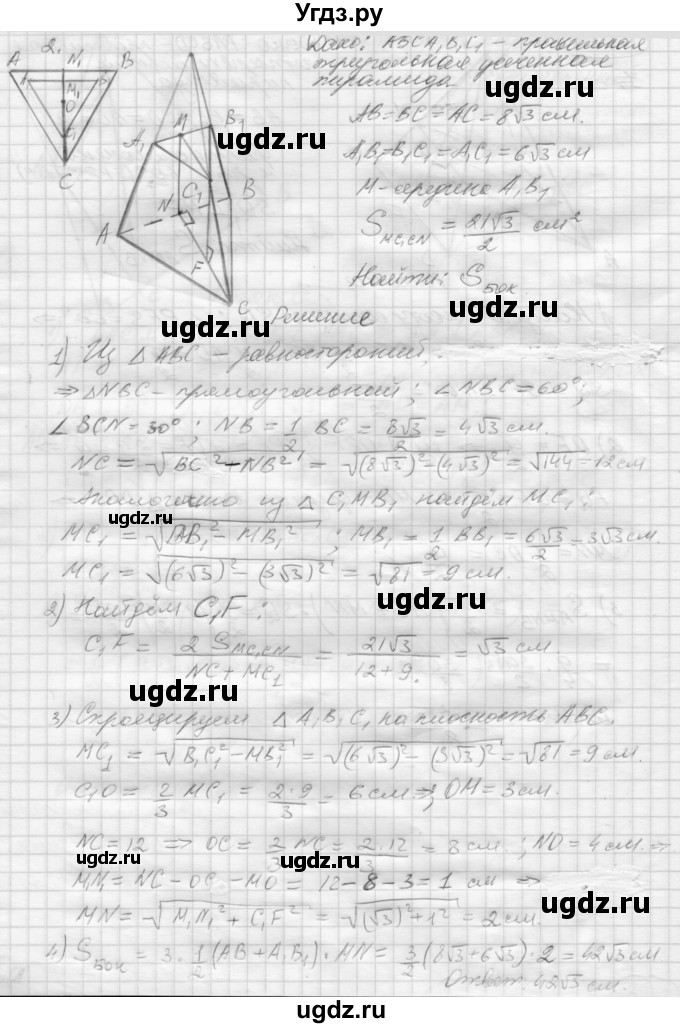 Угдз.ру
2.
A N₁ B
M₁
O
C₁
C
Дано: ABCA₁B₁C₁ - правильная
треугольная усеченная
пирамида
AB = BC = AC = 8√3 см.
A₁B₁ = B₁C₁ = A₁C₁ = 6√3 см
M - середина A₁B₁
S_{MC₁CN} = 21√3/2 см²
Найти: S_{бок.}
A₁ M B₁
N C₁ B
A
F
C
Решение
1) Из △ABC - равносторонний.
⇒ △NBC - прямоугольный; ∠NBC = 60°;
∠BCN = 30°; NB = 1/2 BC = 8√3/2 = 4√3 см.
NC = √(BC² - NB²) = √((8√3)² - (4√3)²) = √144 = 12 см
Аналогично из △C₁MB₁ найдём MC₁:
MC₁ = √(AB₁² - MB₁²); MB₁ = 1/2 BB₁ = 6√3/2 = 3√3 см.
MC₁ = √((6√3)² - (3√3)²) = √81 = 9 см.
2) Найдём C₁F:
C₁F = 2 S_{MC₁CN}/(NC + MC₁) = 21√3/(12 + 9) = √3 см
3) Спроецируем △A₁B₁C₁ на плоскость ABC.
MC₁ = √(B₁C₁² - MB₁²) = √((6√3)² - (3√3)²) = √81 = 9 см.
C₁O = 2/3 MC₁ = 2·9/3 = 6 см ⇒; OM = 3 см.
NC = 12 ⇒ OC = 2/3 NC = 2·12/3 = 8 см.; NO = 4 см. ⇒
M₁N₁ = NC - OC - MO = 12 - 8 - 3 = 1 см ⇒
MN = √(M₁N₁² + C₁F²) = √((√3)² + 1²) = 2 см.
4) S_{бок} = 3·1/2 (AB + A₁B₁)·MN = 3/2 (8√3 + 6√3)·2 = 42√3 см
Ответ: 42√3 см.
udgz.ru
ugdz.ru
ugdz.ru
ugdz.ru
ugdz.ru
ugdz.ru
ugdz.ru
ugdz.ru
ugdz.ru
ugdz.ru
ugdz.ru
ugdz.ru
ugdz.ru
ugdz.ru
ugdz.ru